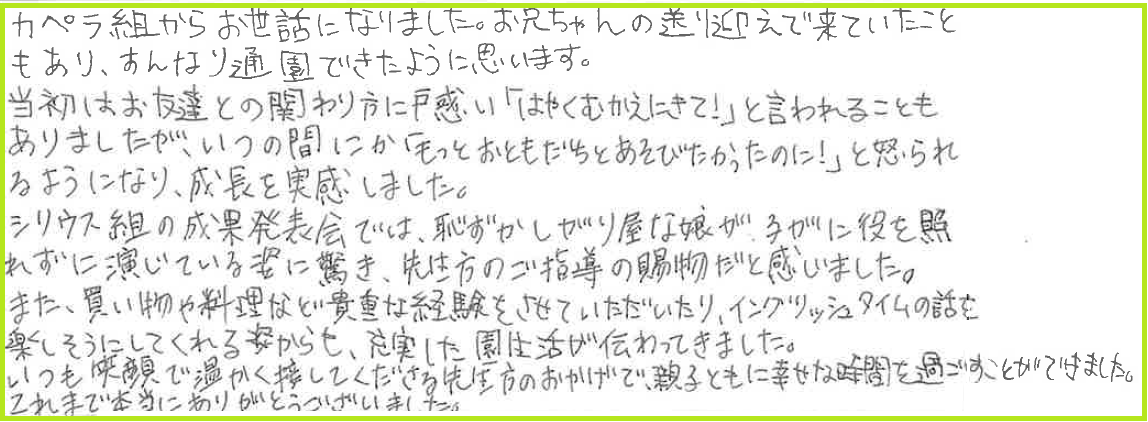 カペラ組からお世話になりました。お兄ちゃんの送り迎えで来ていたこと
もあり、すんなり通園できたように思います。
当初はお友達との関わり方に戸惑い「はやくむかえにきて!」と言われることも
ありましたが、いつの間にか「もっとおともだちとあそびたかったのに!」と怒られ
るようになり、成長を実感しました。
シリウス組の成果発表会では、恥ずかしがり屋な娘が、子がに役を照
れずに演じている姿に驚き、先生方のご指導の賜物だと感じました。
また、買い物や料理など貴重な経験をさせていただいたり、イングリッシュタイムの話を
楽しそうにしてくれる姿からも、充実した園生活が伝わってきました。
いつも笑顔で温かく接してくださる先生方のおかげで、親子ともに幸せな時間を過ごすことができました。
これまで本当にありがとうございました。